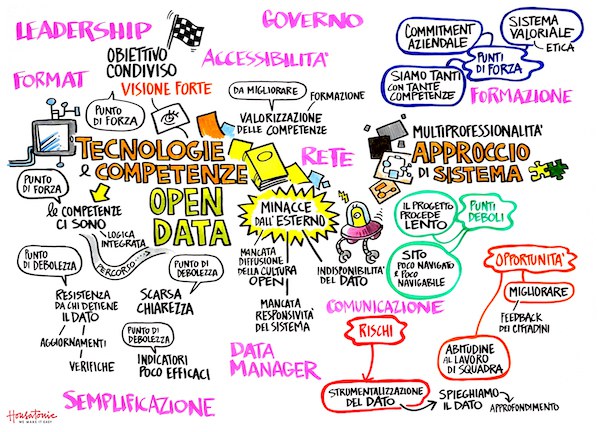 LEADERSHIP
GOVERNO
OBIETTIVO
CONDIVISO
VISIONE FORTE
ACCESSIBILITA'
FORMAT
PUNTO
DI FORZA
DA MIGLIORARE
FORMAZIONE
VALORIZZAZIONE
DELLE COMPETENZE
COMMITMENT
AZIENDALE
SISTEMA
VALORIALE
ETICA
PUNTI
DI FORZA
SIAMO TANTI
CON TANTE
COMPETENZE
FORMAZIONE
TECNOLOGIE
e COMPETENZE
OPEN
DATA
RETE
MULTIPROFESSIONALITA'
APPROCCIO
DI SISTEMA
PUNTO
DI FORZA
le COMPETENZE
CI SONO
LOGICA
INTEGRATA
PERCORSO
MINACCE
DALL'ESTERNO
MANCATA
DIFFUSIONE
DELLA CULTURA
OPEN
INDISPONIBILITA'
DEL DATO
MANCATA
RESPONSIVITÀ
DEL SISTEMA
IL PROGETTO
PROCEDE
LENTO
PUNTI
DEBOLI
SITO
POCO NAVIGATO
e POCO
NAVIGABILE
OPPORTUNITA'
MIGLIORARE
FEEDBACK
DEI CITTADINI
ABITUDINE
AL LAVORO
DI SQUADRA
PUNTO
DI DEBOLEZZA
RESISTENZA
DA CHI DETIENE
IL DATO
AGGIORNAMENTI
VERIFICHE
PUNTO
DI DEBOLEZZA
SCARSA
CHIAREZZA
PUNTO
DI DEBOLEZZA
INDICATORI
POCO EFFICACI
COMUNICAZIONE
RISCHI
DATA
MANAGER
STRUMENTALIZZAZIONE
DEL DATO
SPIEGHIAMO
IL DATO
APPROFONDIMENTO
SEMPLIFICAZIONE
Housatonic
WE MAKE IT EASY